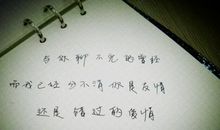 与你聊不完的曾经
而我已经分不清你是友情
还是错过的爱情